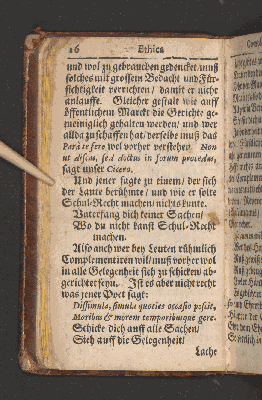 16 Ethica
und wol zu gebrauchen gedencket/muß
solches mit grossem Bedacht und Für-
sichtigkeit verrichten/ damit er nicht
anlauffe. Gleicher gestalt wie auff
öffentlichem Marckt die Gerichte ge-
meiniglich gehalten werden/ und wer
allda zuschaffen hat/derselbe muß das
wol vorher verstehen. Non
ut discas, sed doctus in forum procedas,
sagt unser Cicero.
Und jener sagte zu einem/ der sich
der Laute berühmte/ und wie er solte
Schul-Recht machen/ nichts kunte.
Unterfang dich keiner Sachen/
Wo du nicht kanst Schul-Recht
machen.
Also auch wer bey Leuten rühmlich
Complementiren wil/muß vorher wol
in alle Gelegenheit sich zu schicken/ ab-
gerichtet seyn. Ist es aber nicht recht
was jener Poet sagt:
Dissimula, simula quoties occasio poscit,
Moribus & morem temporibusque gere.
Schicke dich auff alle Sachen/
Sieh auff die Gelegenheit/
Lache